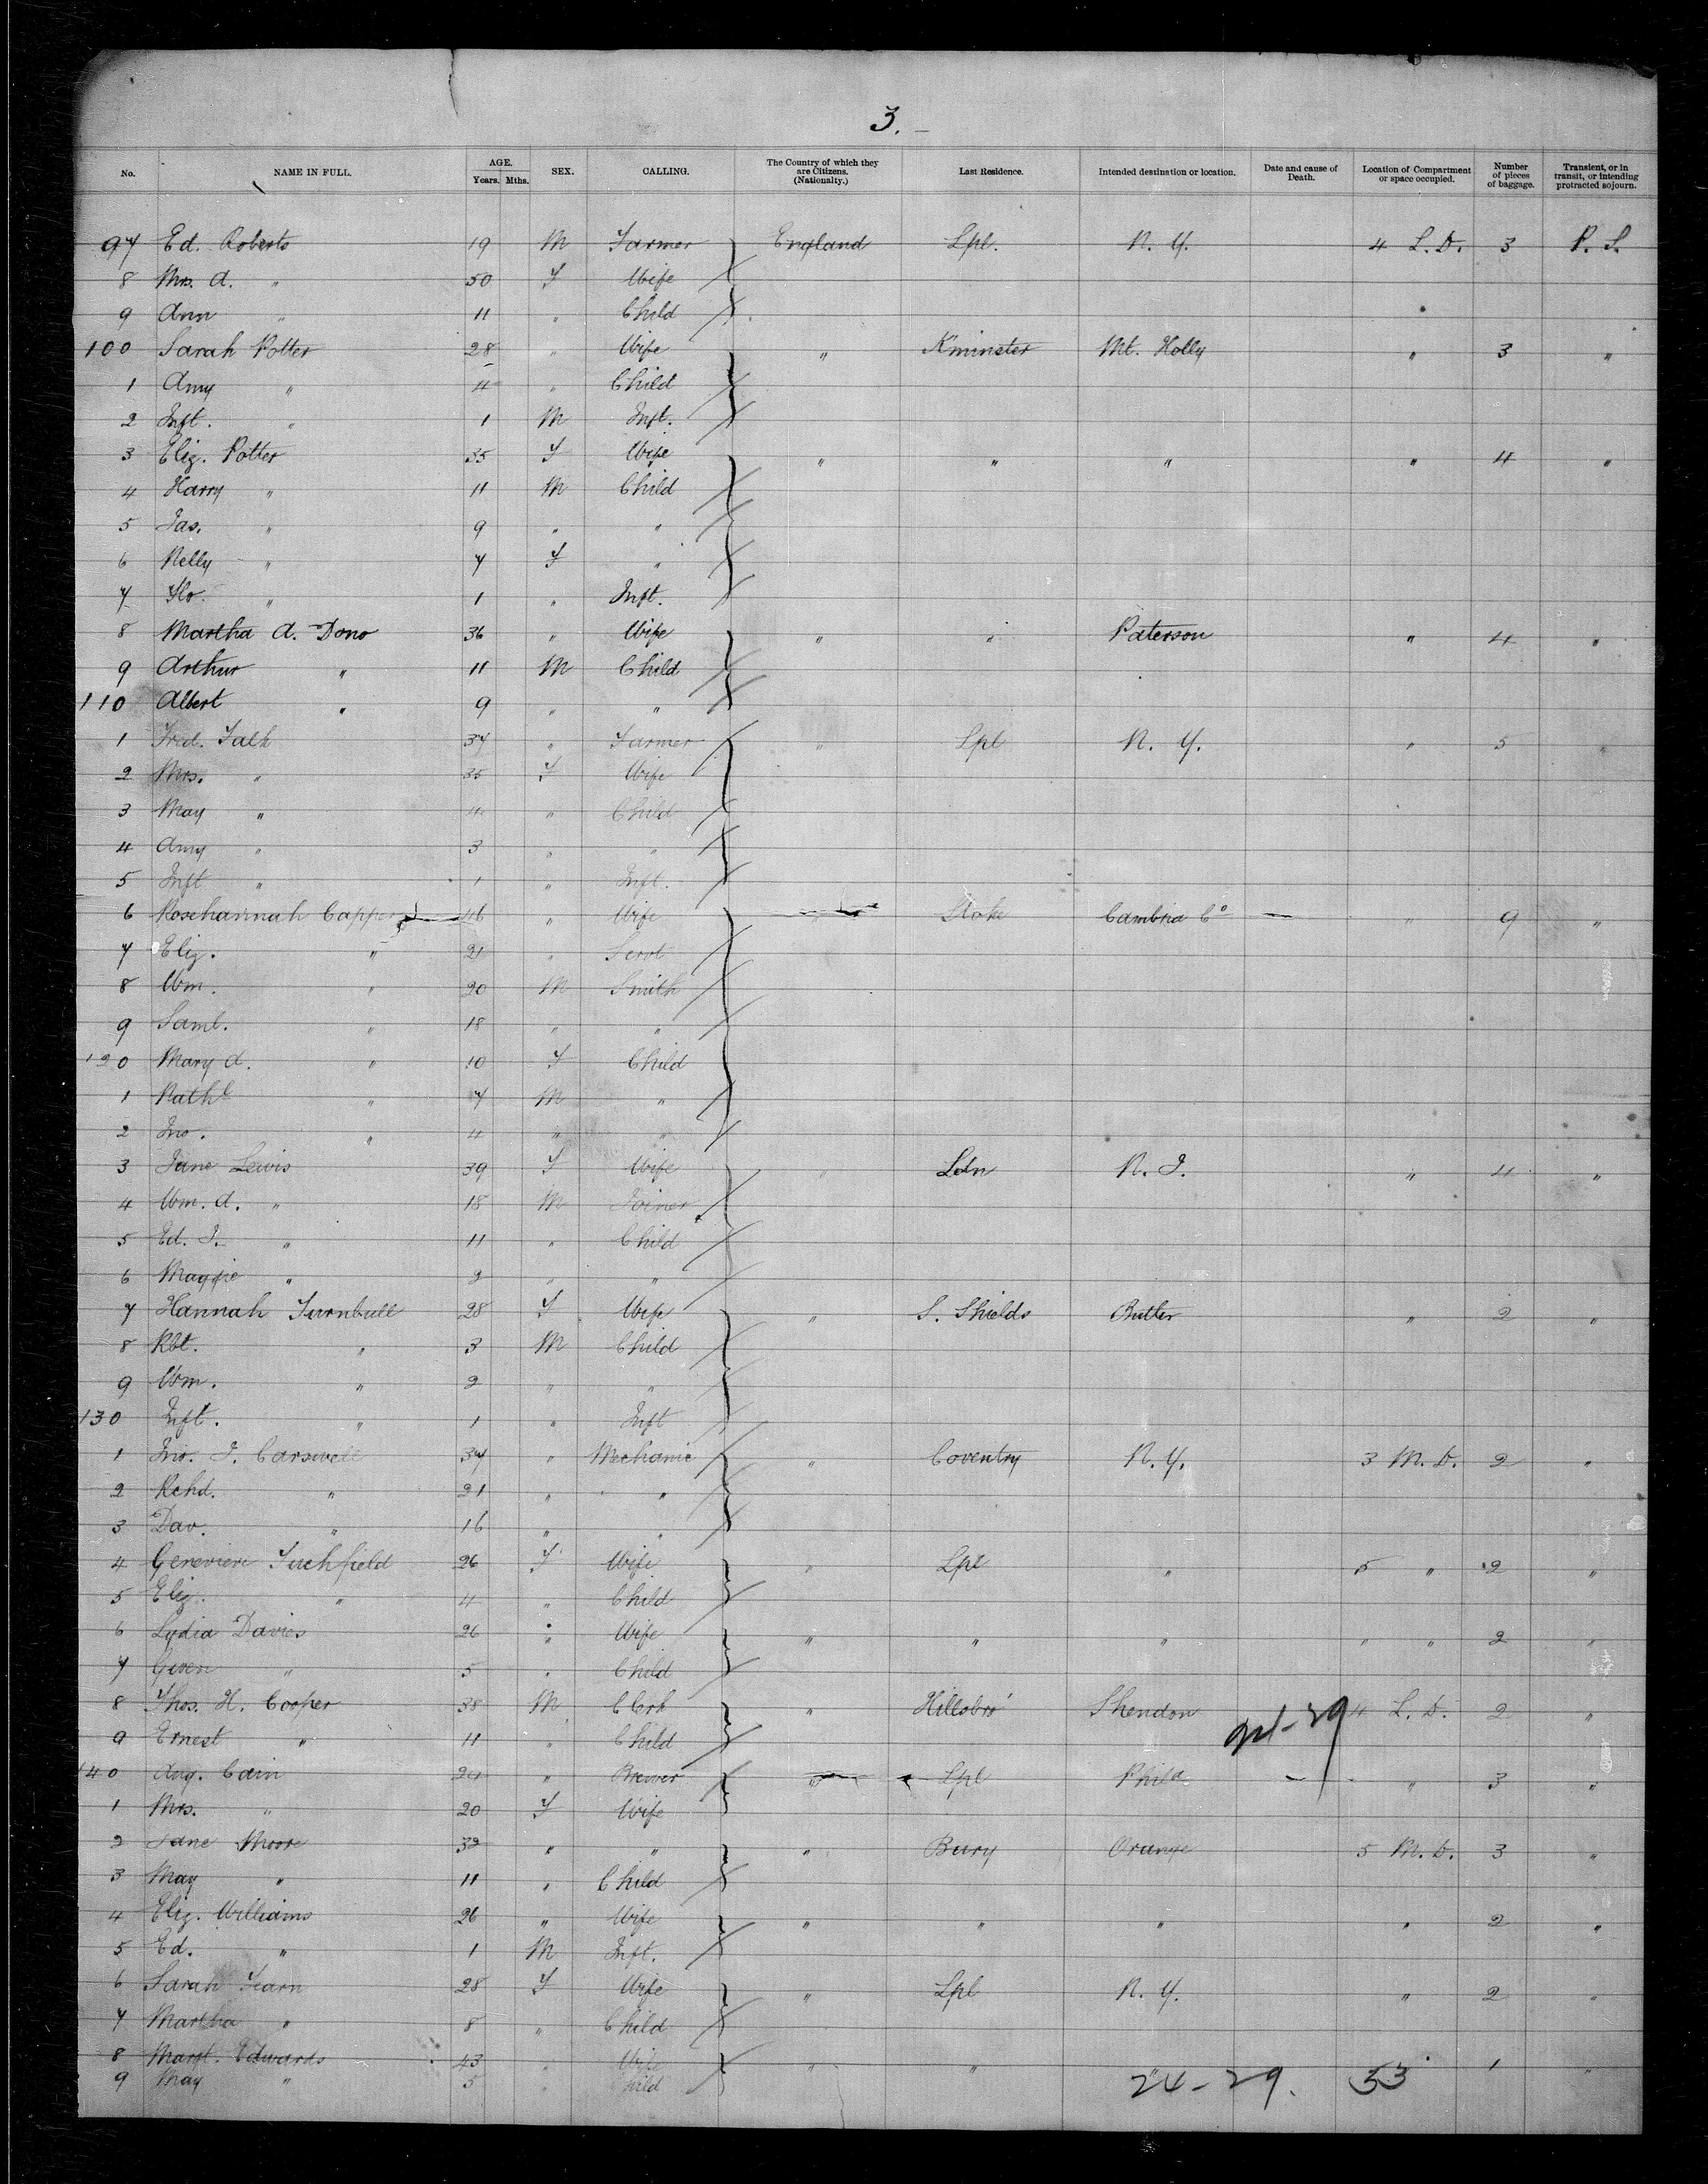 3.
No. NAME IN FULL. AGE. Years. Mths. SEX. CALLING. The Country of which they are Citizens. (Nationalty.) Last Residence. Intended destination or location. Date and cause of Death. Location of Compartment or space occupied. Number of pieces of baggage. Transient, or in transit, or intending protracted sojourn.
97 Ed. Roberts 19 M Farmer England Lpl. N. Y. 4 L. D. 3 P. S.
8 Mrs. A. " 50 F Wife
9 Ann " 11 " Child
100 Sarah Potter 28 " Wife " K'minster Mt. Holly " 3 "
1 Amy " 4 " Child
2 Inft. " 1 M Inft.
3 Eliz. Potter 35 F Wife " " " " 4 "
4 Harry " 11 M Child
5 Jas. " 9 " "
6 Nelly " 7 F "
7 Flo. " 1 " Inft.
8 Martha A. Dono 36 " Wife " " Paterson " 4 "
9 Arthur " 11 M Child
110 Albert " 9 " "
1 Fred. Falk 37 " Farmer " Lpl N. Y. " 5 "
2 Mrs. " 35 F Wife
3 May " 4 " Child
4 Amy " 3 " "
5 Inft " 1 " Inft.
6 Rosehannah Capper 46 " Wife Stoke Cambria Co " 9 "
7 Eliz. " 21 " Servt
8 Wm. " 20 M Smith
9 Saml. " 18 " "
120 Mary A. " 10 F Child
1 Nathl " 7 M "
2 Jno. " 4 " "
3 Jane Lewis 39 F Wife " Ldn N. J. " 4 "
4 Wm. A. " 18 M Joiner
5 Ed. J. " 11 " Child
6 Maggie " 2 " "
7 Hannah Turnbull 28 F Wife " S. Shields Butler " 2 "
8 Rbt. " 3 M Child
9 Wm. " 2 " "
130 Inft. " 1 " Inft
1 Jno. J. Carswell 37 " Mechanic " Coventry N. Y. 3 M. D. 2 "
2 Rchd. " 21 " "
3 Dav. " 16 " "
4 Genevieve Tuchfield 26 F Wife " Lpl " 5 " 2 "
5 Eliz. " 4 " Child
6 Lydia Davies 26 " Wife " " " " " 2 "
7 Gwen " 5 " Child
8 Thos. H. Cooper 38 M Clerk " Hillsbro' Shendon 4 L. D. 2 "
9 Ernest " 11 " Child
140 Aug. Cain " Brewer " Lpl Phila " 3 "
1 Mrs. " 20 F Wife
2 Jane Moore 32 " " " Bury Orange 5 M. D. 3 "
3 May " 11 " Child
4 Eliz. Williams 26 " Wife " " " " 2 "
5 Ed. " 1 M Inft.
6 Sarah Fearn 28 F Wife " Lpl N. Y. " 2 "
7 Martha " 8 " Child
8 Margt. Edwards 43 " Wife " " " 1 "
9 May " 5 " Child
24-29. 53